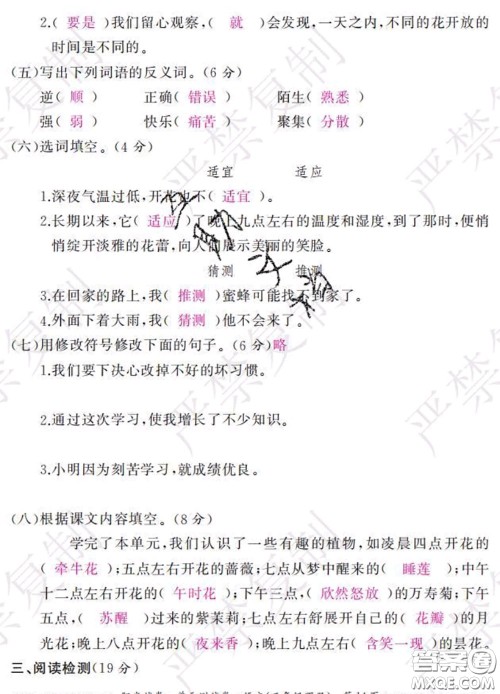 2.( 要是 )我们留心观察,( 就 )会发现,一天之内,不同的花开放的
时间是不同的。
(五)写出下列词语的反义词。(6 分)
逆( 顺 ) 正确( 错误 ) 陌生( 熟悉 )
强( 弱 ) 快乐( 痛苦 ) 聚集( 分散 )
(六)选词填空。(4 分)
适宜 适应
1.深夜气温过低,开花也不( 适宜 )。
2.长期以来,它( 适应 )了晚上九点左右的温度和湿度,到了那时,便悄
悄绽开淡雅的花蕾,向人们展示美丽的笑脸。
猜测 推测
3.在回家的路上,我( 推测 )蜜蜂可能找不到家了。
4.外面下着大雨,我( 猜测 )他不会来了。
(七)用修改符号修改下面的句子。(6 分)略
1.我们要下决心改掉不好的坏习惯。
2.通过这次学习,使我增长了不少知识。
3.小明因为刻苦学习,就成绩优良。
(八)根据课文内容填空。(8 分)
学完了本单元,我们认识了一些有趣的植物,如凌晨四点开花的
( 牵牛花 );五点左右开花的蔷薇;七点从梦中醒来的( 睡莲 );中午
十二点左右开花的( 午时花 );下午三点,( 欣然怒放 )的万寿菊;下午
五点,( 苏醒 )过来的紫茉莉;七点左右舒展开自己的( 花瓣 )的月
光花;晚上八点开花的( 夜来香 );晚上九点左右( 含笑一现 )的昙花。
三、阅读检测(19 分)
严禁复制
答案圈
MXQE.COM